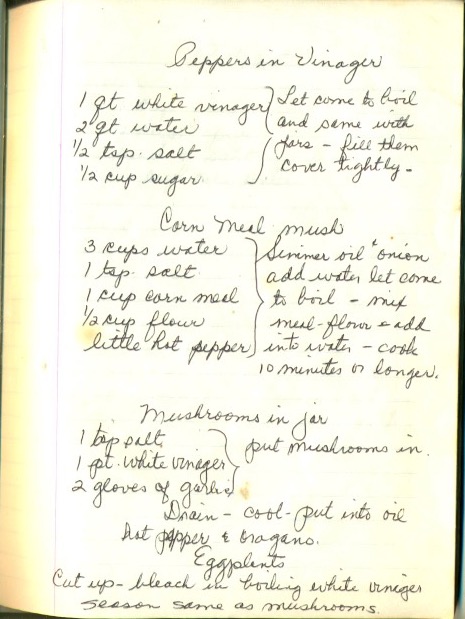 Peppers in Vinager
1 qt white vinager
2 qt water
1/2 tsp. salt
1/2 cup sugar
Let come to boil
and same with
jars - fill them
cover tightly -
Corn Meal mush
3 cups water
1 tsp. salt
1 cup corn meal
1/2 cup flour
little hot pepper
Simmer oil & onion
add water let come
to boil - mix
meal-flour & add
into water - cook
10 minutes or longer.
Mushrooms in jar
1 tsp salt
1 pt. white vinager
2 gloves of garlic
put mushrooms in.
Drain - cool - put into oil
hot pepper & oragano.
Eggplents
Cut up - bleach in boiling white vinager
season same as mushrooms.